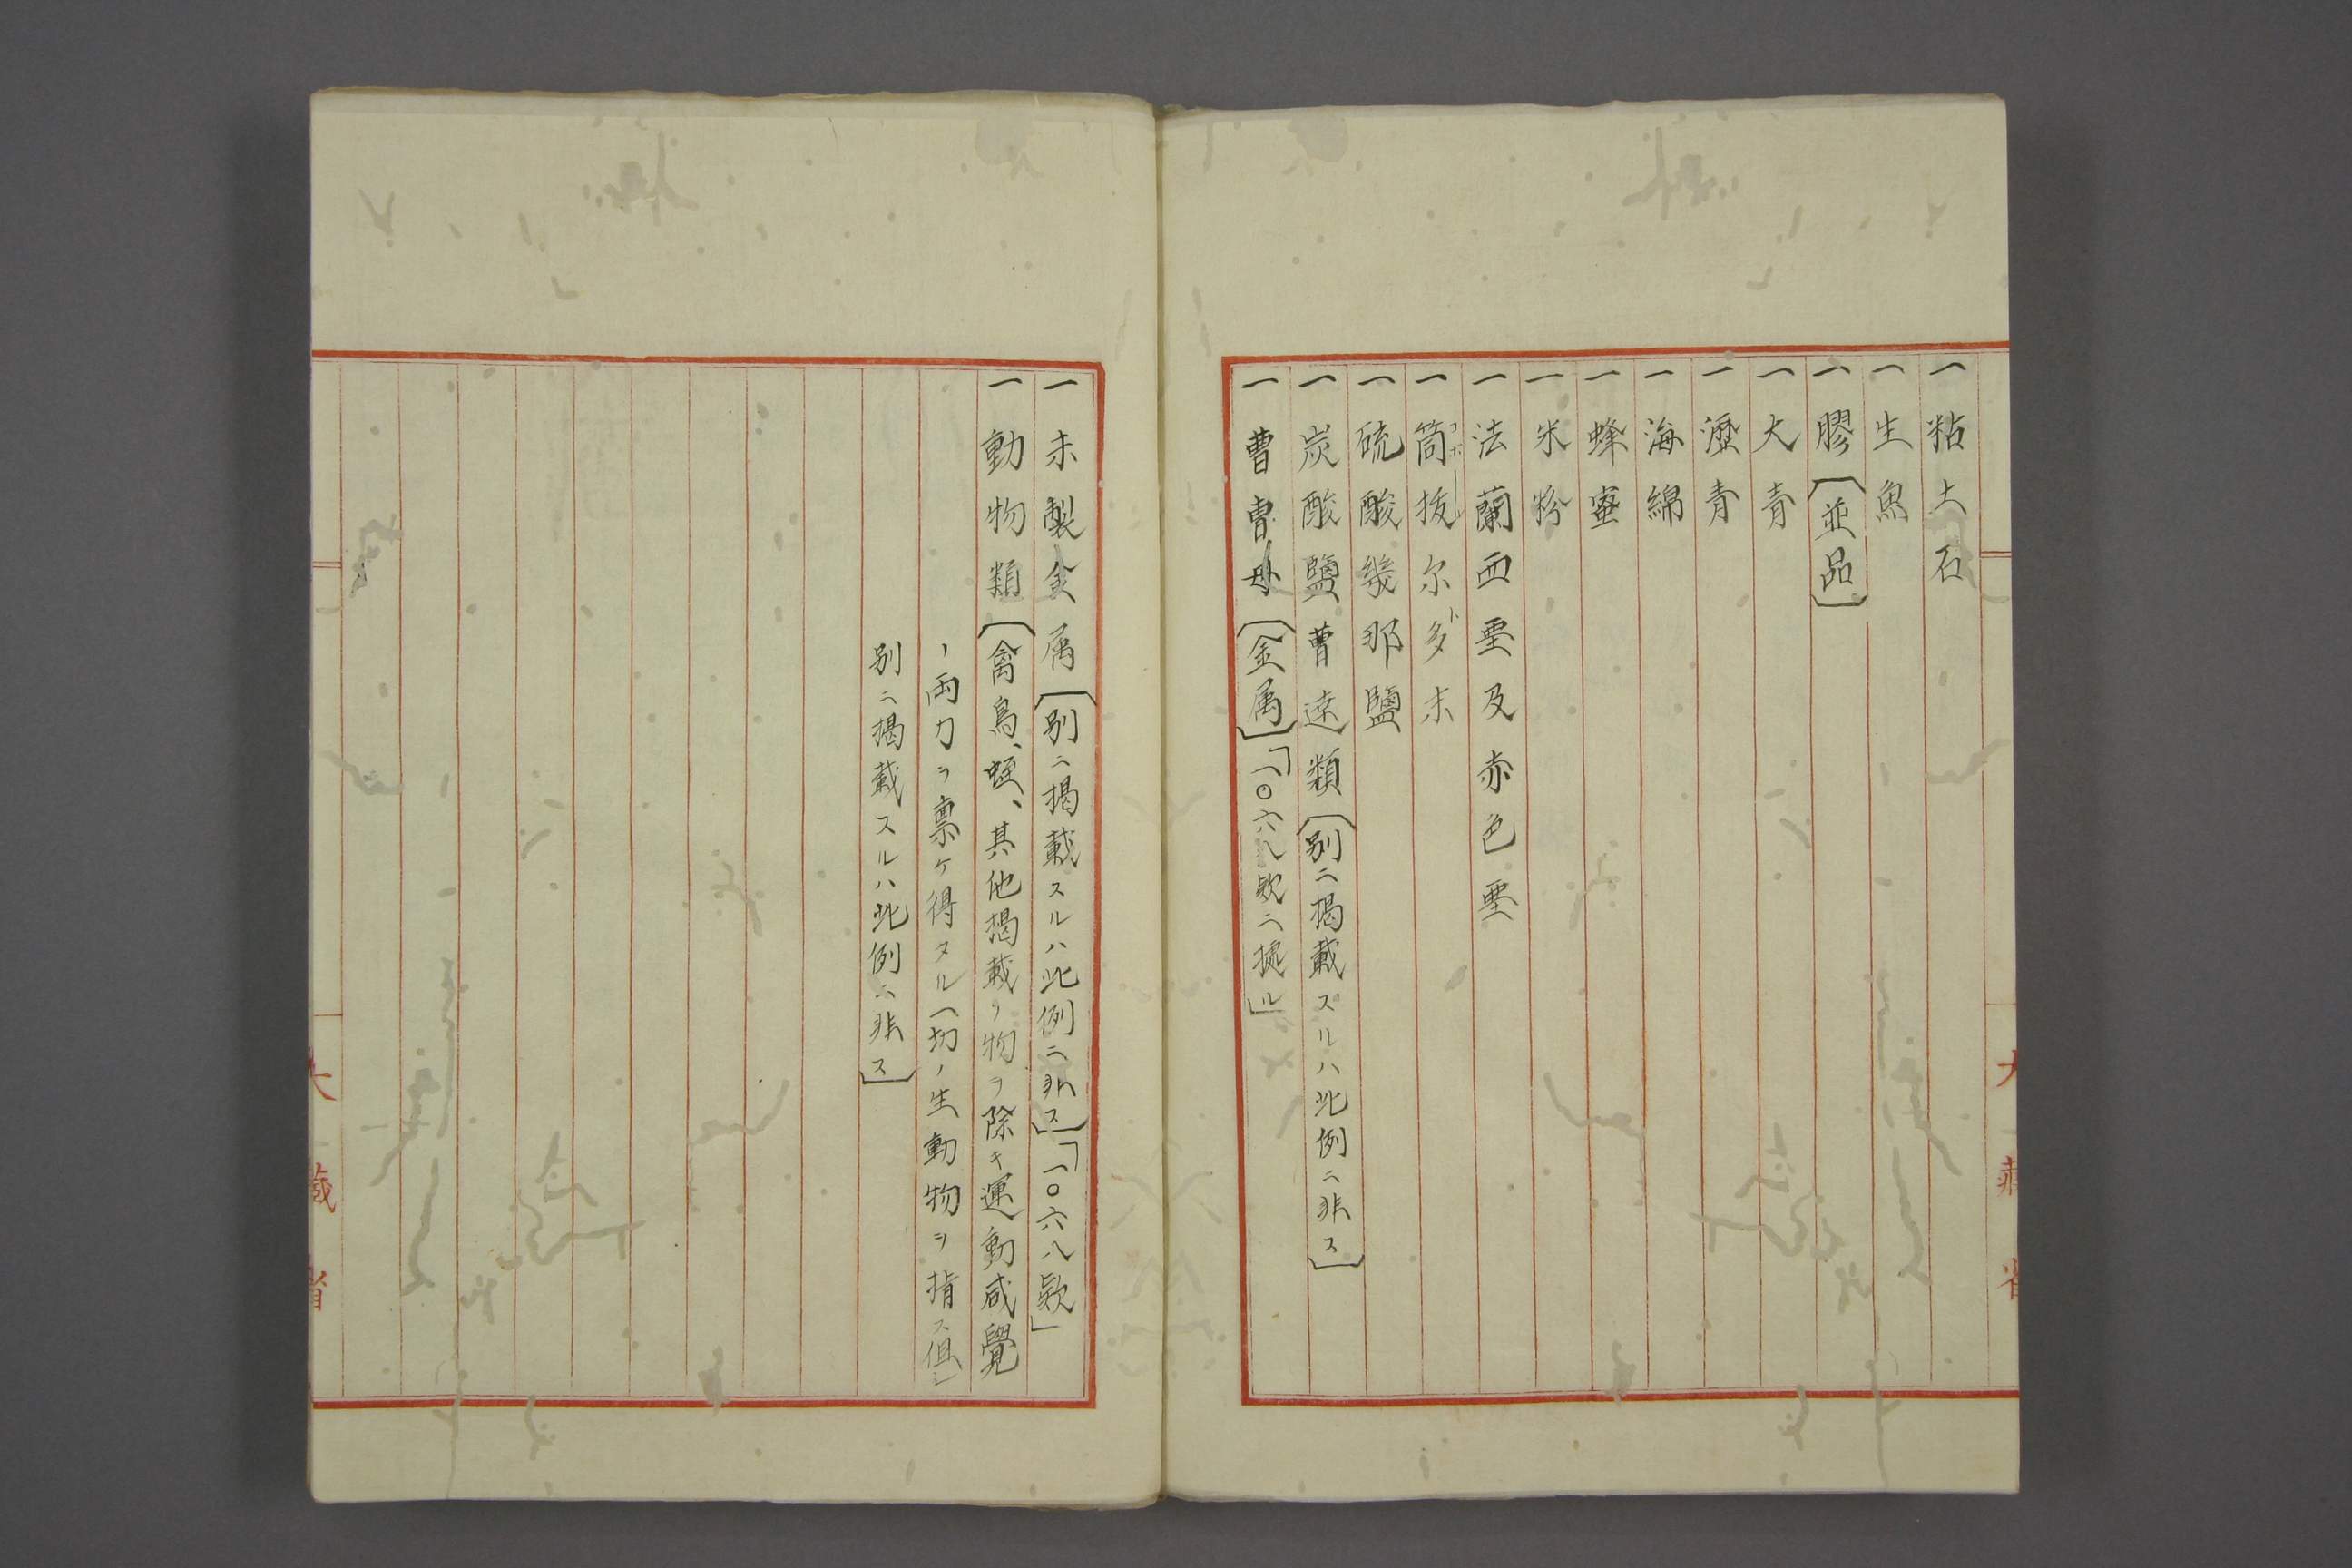 一 粘土石
一 生魚
一 膠〔並品〕
一 大青
一 瀝青
一 海綿
一 蜂蜜
一 米粉
一 法蘭西堊及赤色堊
一 筒抜尓多末
一 硫酸幾那鹽
一 炭酸鹽曹達類〔別ニ掲載スルハ此例ニ非ス〕
一 曹曹母〔金属〕「一〇六八欵ニ拠ル」
一 未製金属〔別ニ掲載スルハ此例ニ非ス〕「一〇六八欵」
一 動物類〔禽鳥、蛭、其他掲載ノ物ヲ除キ運動感覺
ノ両力ヲ禀ケ得タル一切ノ生動物ヲ指ス但シ
別ニ掲載スルハ此例ニ非ス〕
大藏省